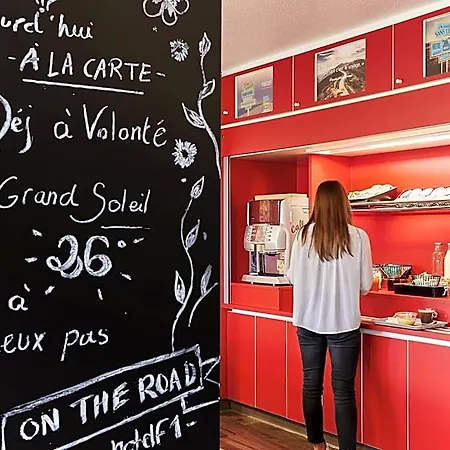 urd'hui
- À LA CARTE -
Déj à Volonté
Grand Soleil
26
à
eux pas
ON THE ROAD
hotelF1-